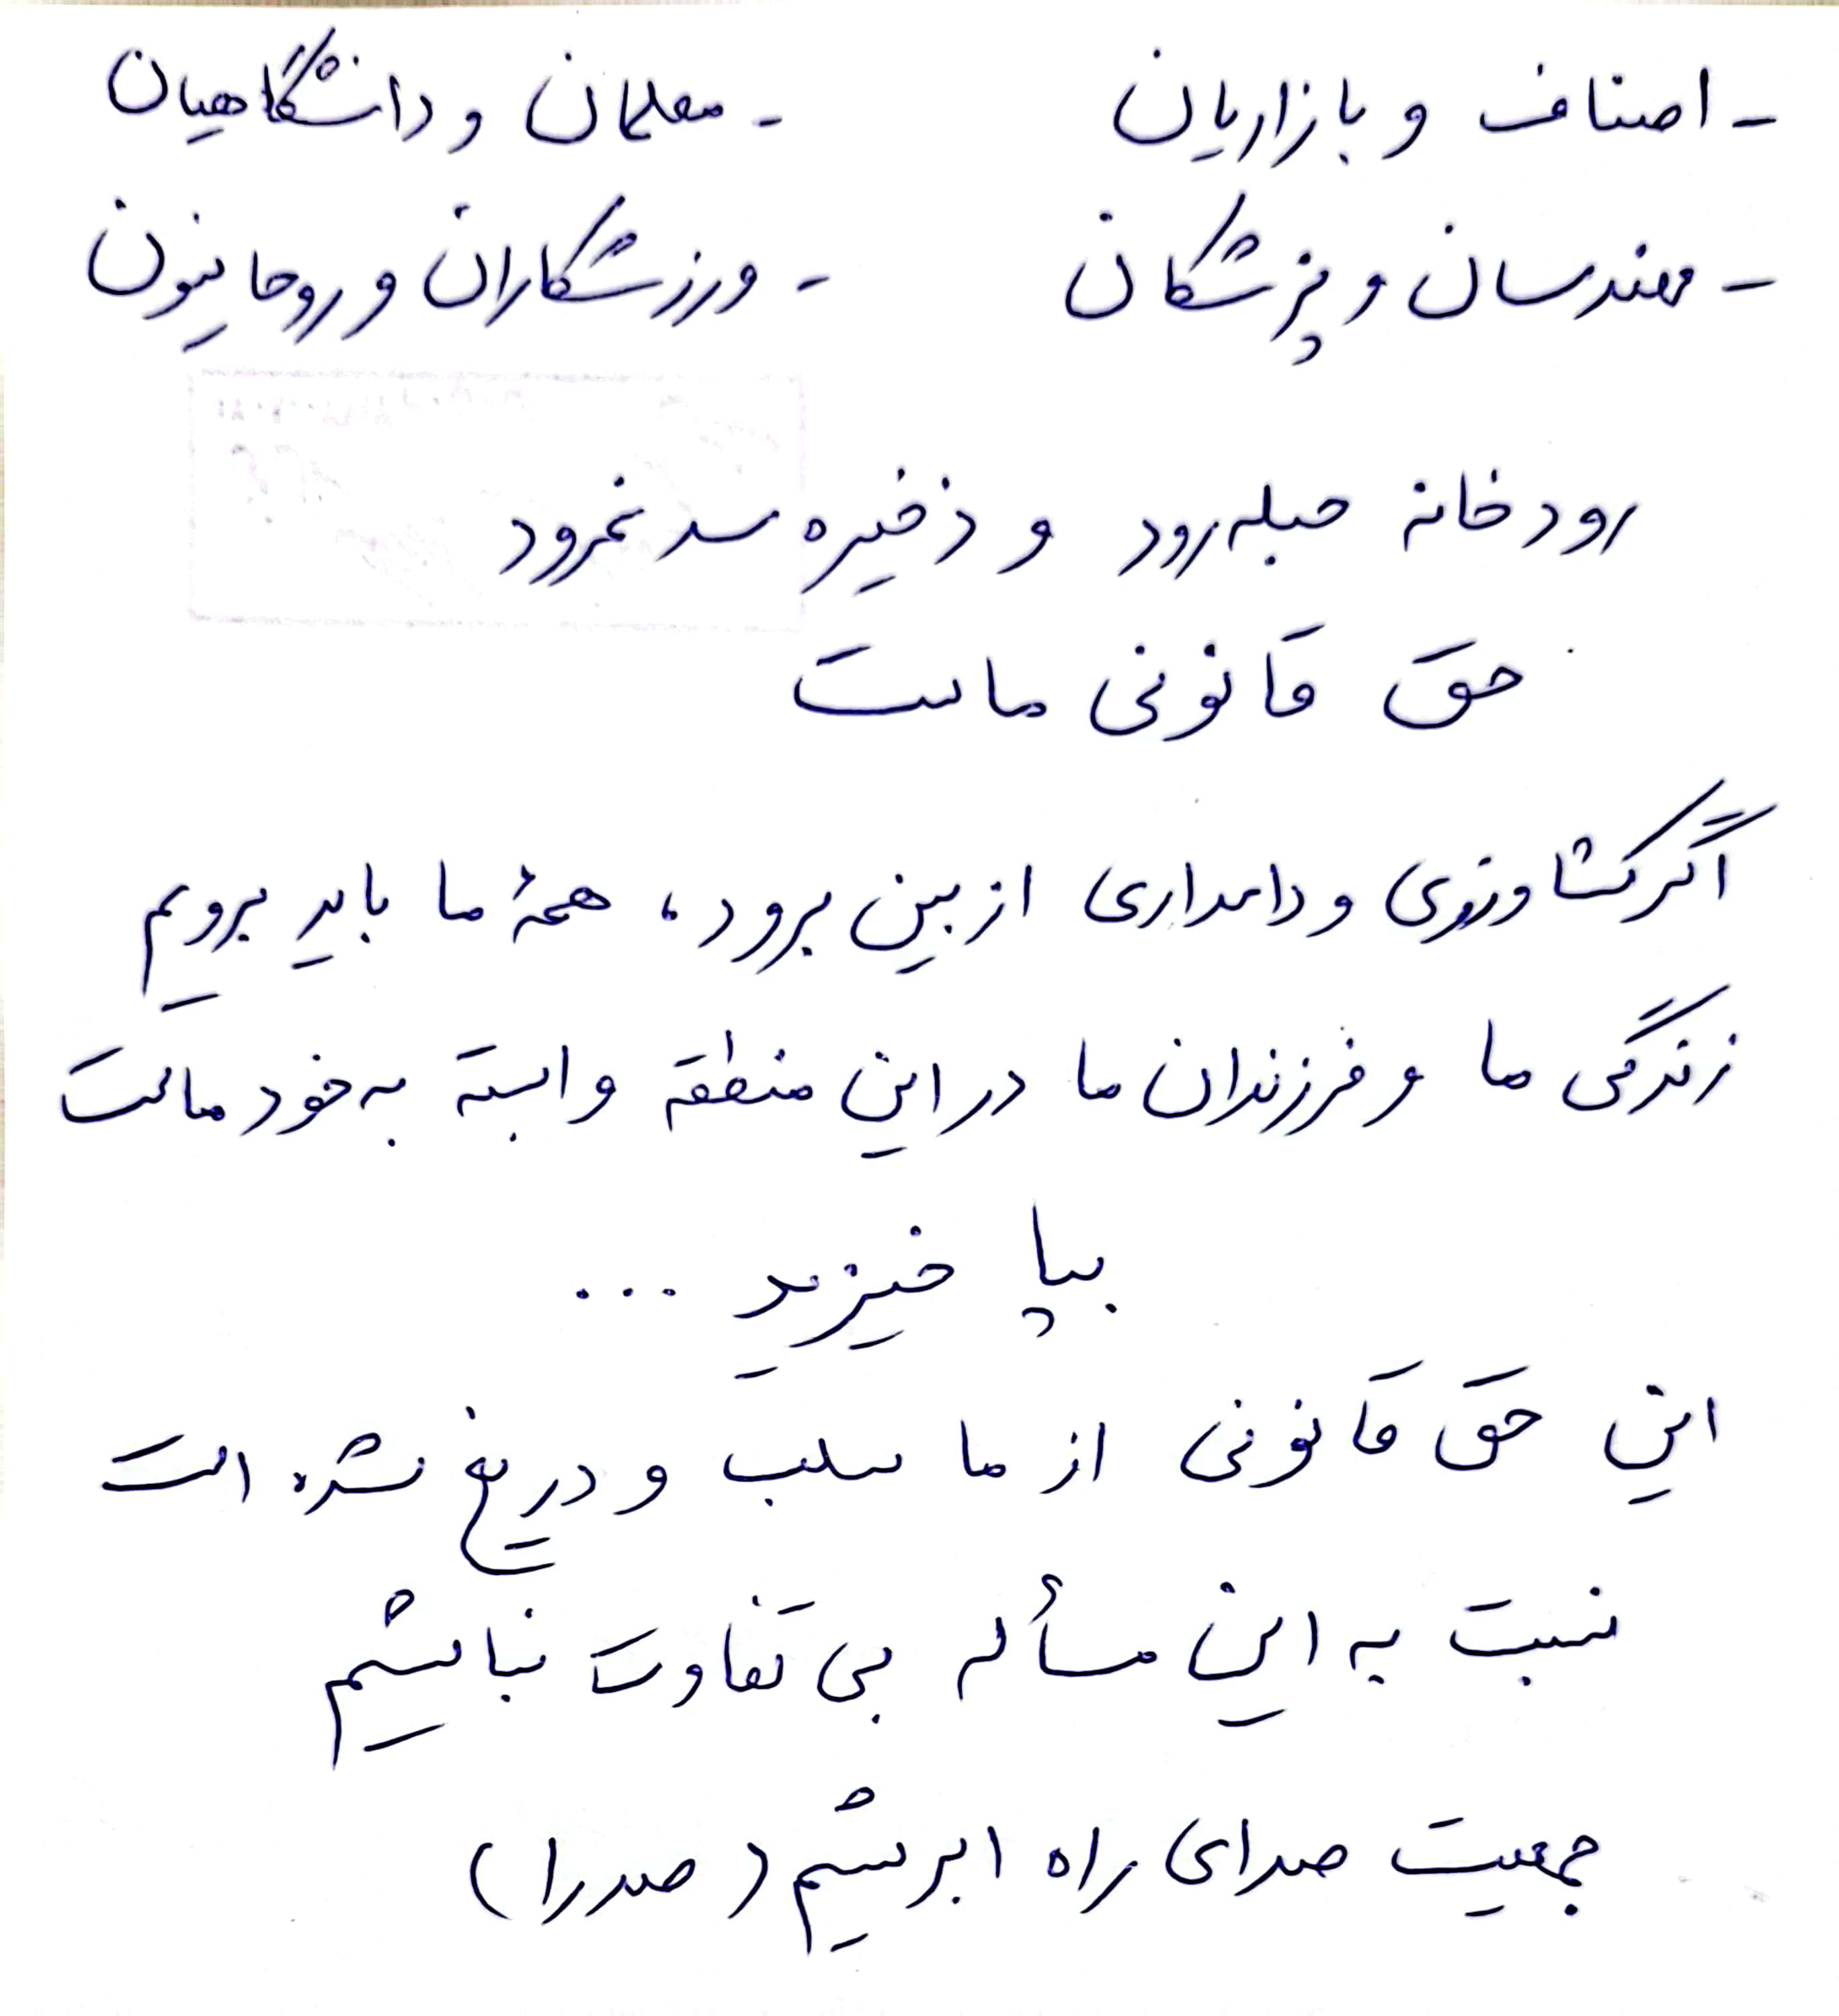 - اصناف و بازاریان - معلمان و دانشگاهیان
- مهندسان و پزشکان - ورزشکاران و روحانیون
رودخانه حبله‌رود و ذخیره سد نمرود
حق قانونی ماست
اگر کشاورزی و دامداری از بین برود، همهٔ ما باید برویم
زندگی ما و فرزندان ما در این منطقه وابسته به خود ماست
بپا خیزید ....
این حق قانونی از ما سلب و دریغ نشده است
نسبت به این مسأله بی تفاوت نباشیم
جمعیت صدای راه ابریشم (صدرا)